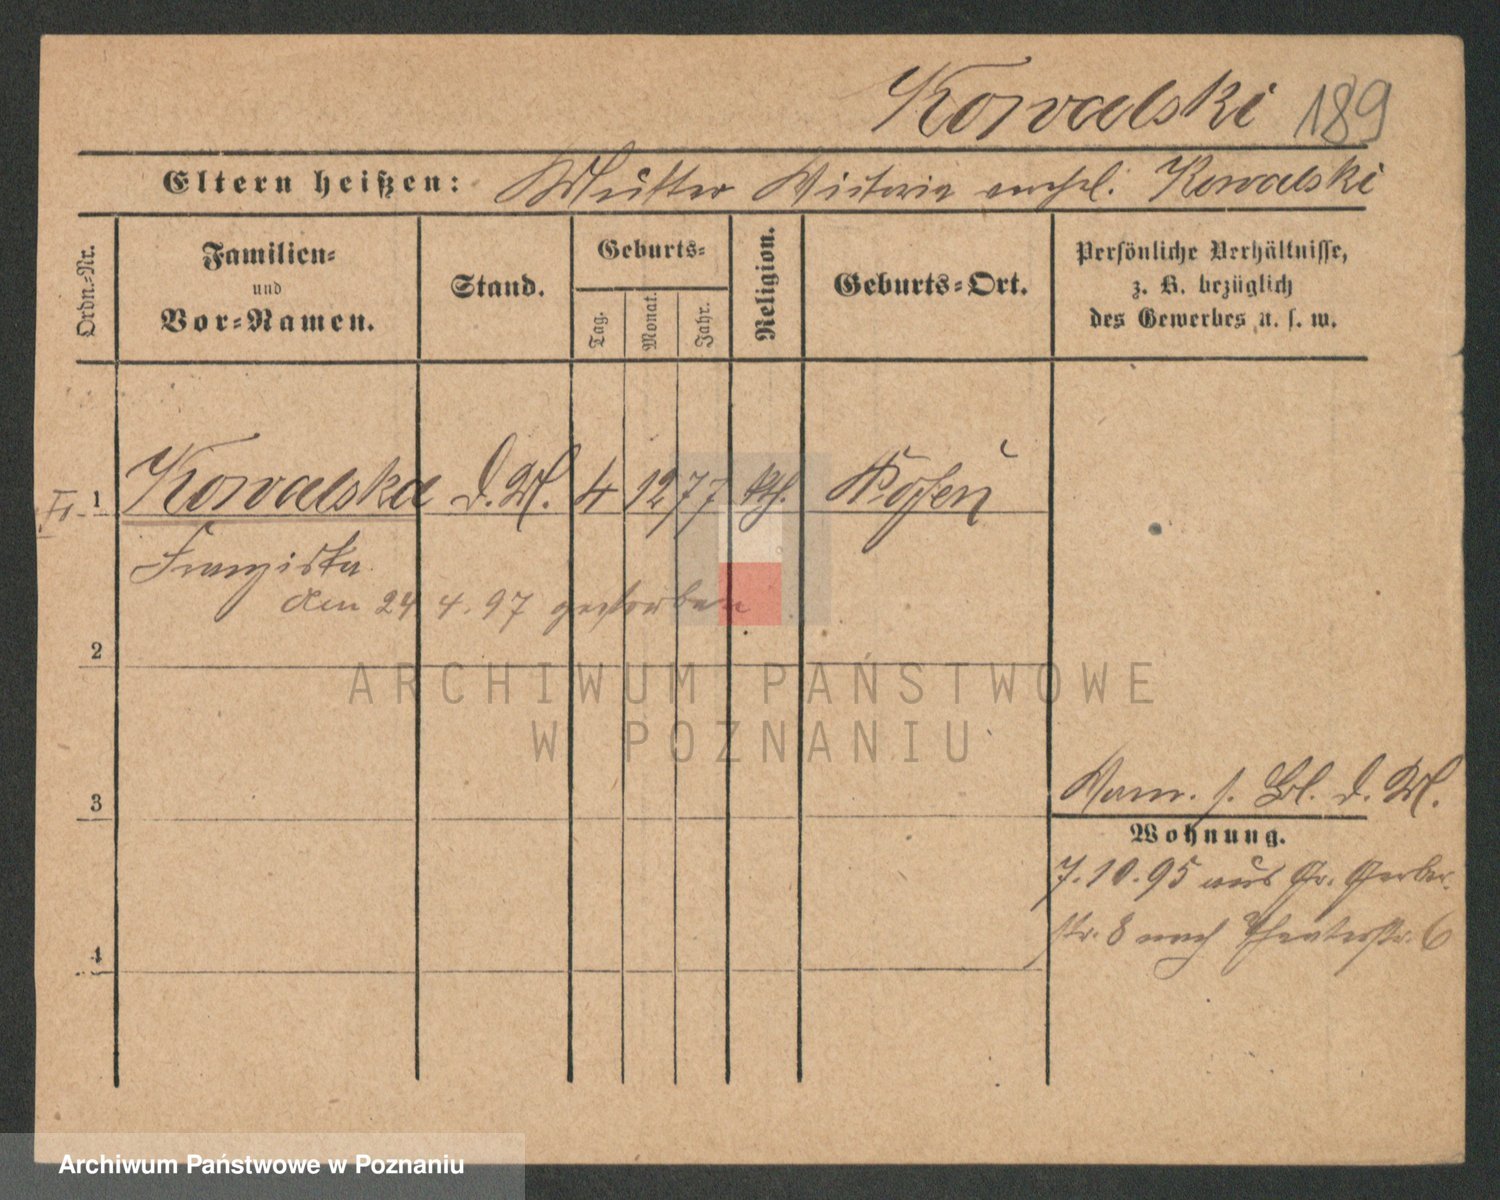 Kowalski 189
Eltern heißen: Mutter Victoria Kowalski
Ordn.=Nr.
Familien=
und
Vor=Namen.
Stand.
Geburts=
Tag.
Monat.
Jahr.
Religion.
Geburts=Ort.
Persönliche Verhältnisse,
z. B. bezüglich
des Gewerbes u. s. w.
1 Kowalska d. M. 4 12 77 kth. Posen
Franziska
den 24 4. 97 gestorben
2
ARCHIWUM PAŃSTWOWE
W POZNANIU
3
Verm. s. Bl. d. M.
Wohnung.
7.10.95 aus Gr. Gerber-
str. 8 nach Theaterstr. 6
4
Archiwum Państwowe w Poznaniu